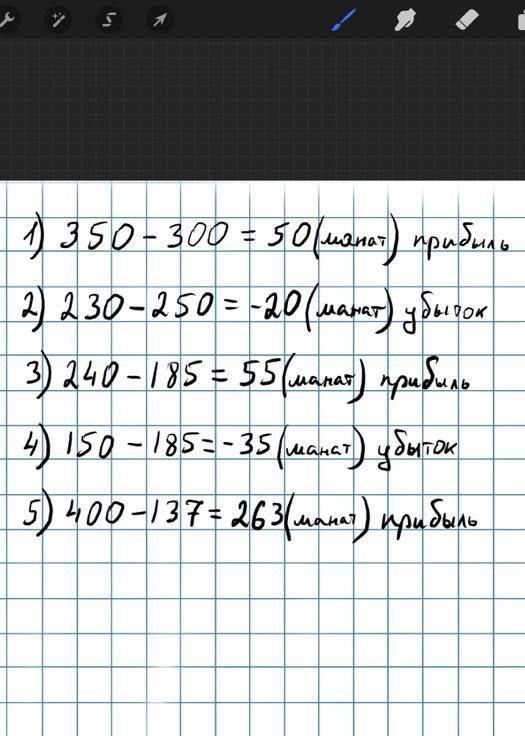 1) 350 - 300 = 50 (манат) прибыль
2) 230 - 250 = -20 (манат) убыток
3) 240 - 185 = 55 (манат) прибыль
4) 150 - 185 = -35 (манат) убыток
5) 400 - 137 = 263 (манат) прибыль